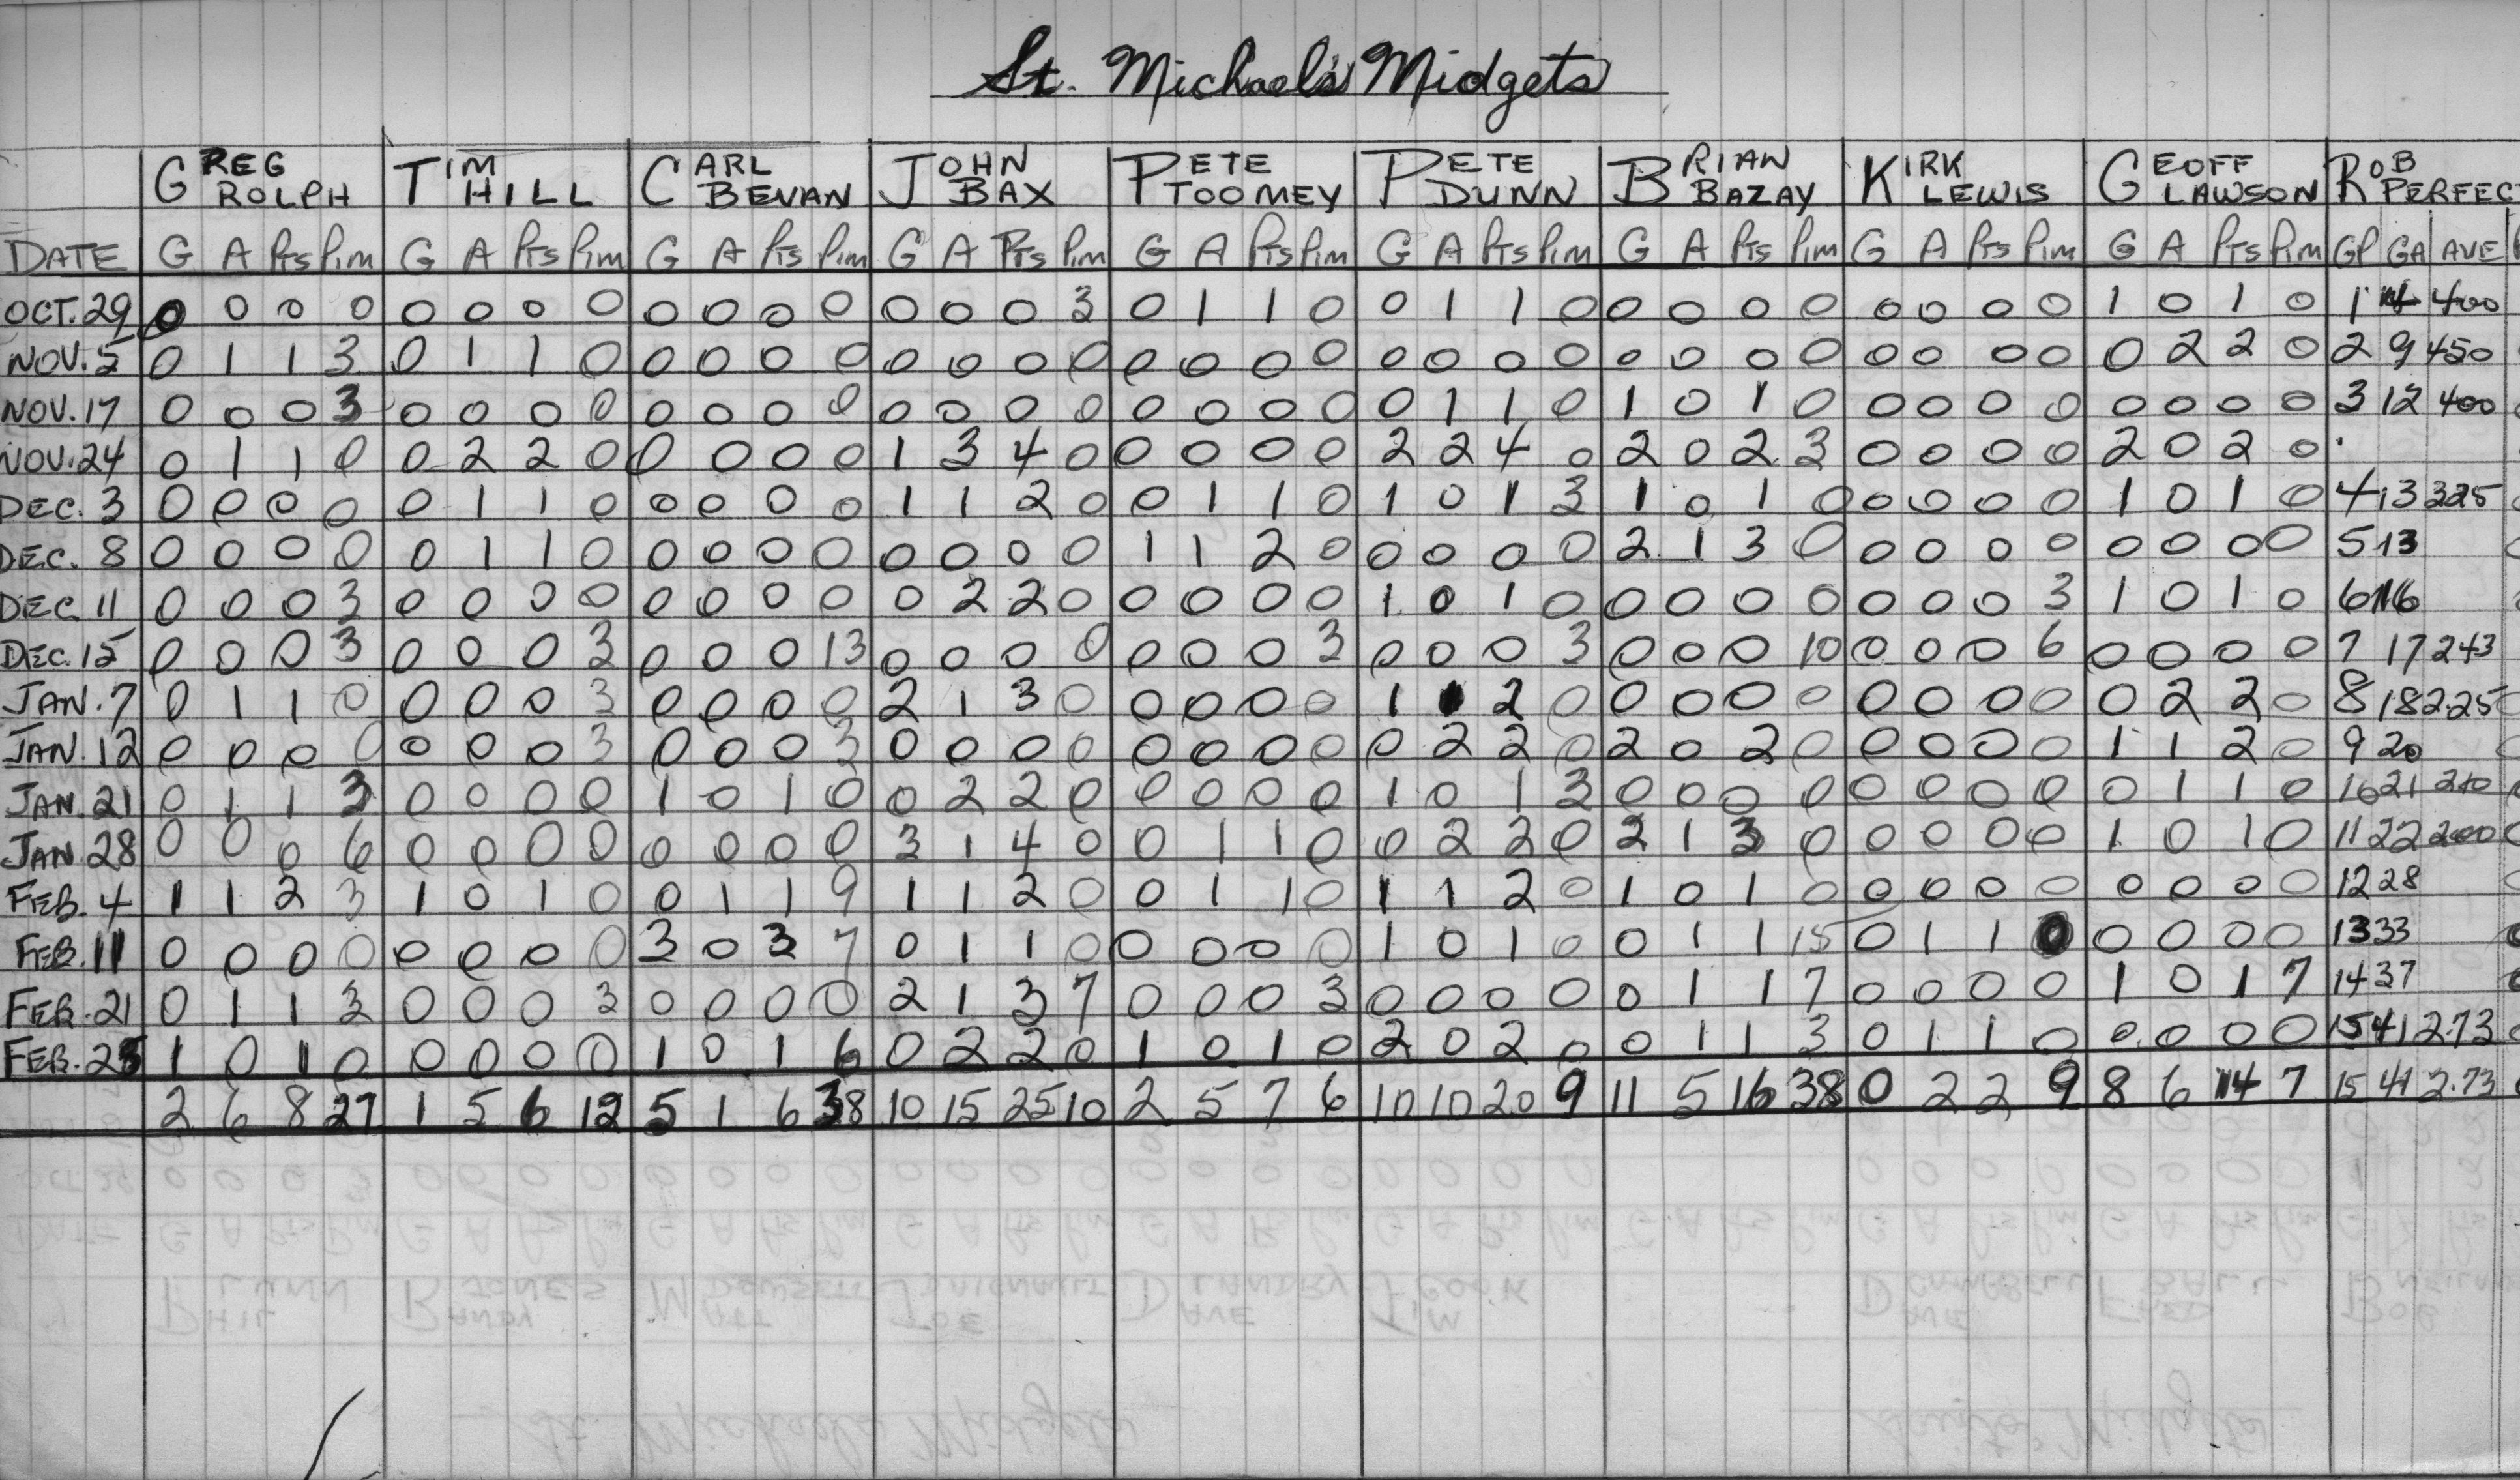 St. Michael's Midgets
GREG ROLPH TIM HILL CARL BEVAN JOHN BAX PETE TOOMEY PETE DUNN BRIAN BAZAY KIRK LEWIS GEOFF LAWSON ROB PERFEC
DATE G A Pts Pim G A Pts Pim G A Pts Pim G A Pts Pim G A Pts Pim G A Pts Pim G A Pts Pim G A Pts Pim G A Pts Pim GP GA AVE
OCT. 29 0 0 0 0 0 0 0 0 0 0 0 0 0 0 0 3 0 1 1 0 0 1 1 0 0 0 0 0 0 0 0 0 1 0 1 0 1 4 400
NOV. 5 0 1 1 3 0 1 1 0 0 0 0 0 0 0 0 0 0 0 0 0 0 0 0 0 0 0 0 0 0 0 0 0 0 2 2 0 2 9 450
NOV. 17 0 0 0 3 0 0 0 0 0 0 0 0 0 0 0 0 0 0 0 0 0 1 1 0 1 0 1 0 0 0 0 0 0 0 0 0 3 12 400
NOV. 24 0 1 1 0 0 2 2 0 0 0 0 0 1 3 4 0 0 0 0 0 2 2 4 0 2 0 2 3 0 0 0 0 2 0 2 0
DEC. 3 0 0 0 0 0 1 1 0 0 0 0 0 1 1 2 0 0 1 1 0 1 0 1 3 1 0 1 0 0 0 0 0 1 0 1 0 4 13 325
DEC. 8 0 0 0 0 0 1 1 0 0 0 0 0 0 0 0 0 1 1 2 0 0 0 0 0 2 1 3 0 0 0 0 0 0 0 0 0 5 13
DEC. 11 0 0 0 3 0 0 0 0 0 0 0 0 0 2 2 0 0 0 0 0 1 0 1 0 0 0 0 0 0 0 0 3 1 0 1 0 6 16
DEC. 15 0 0 0 3 0 0 0 3 0 0 0 13 0 0 0 0 0 0 0 3 0 0 0 3 0 0 0 10 0 0 0 6 0 0 0 0 7 17 243
JAN. 7 0 1 1 0 0 0 0 3 0 0 0 0 2 1 3 0 0 0 0 0 1 1 2 0 0 0 0 0 0 0 0 0 0 2 2 0 8 18 2.25
JAN. 12 0 0 0 0 0 0 0 3 0 0 0 3 0 0 0 0 0 0 0 0 0 2 2 0 2 0 2 0 0 0 0 0 1 1 2 0 9 20
JAN. 21 0 1 1 3 0 0 0 0 1 0 1 0 0 2 2 0 0 0 0 0 1 0 1 3 0 0 0 0 0 0 0 0 0 1 1 0 10 21 210
JAN. 28 0 0 0 6 0 0 0 0 0 0 0 0 3 1 4 0 0 1 1 0 0 2 2 0 2 1 3 0 0 0 0 0 1 0 1 0 11 22 200
FEB. 4 1 1 2 3 1 0 1 0 0 1 1 9 1 1 2 0 0 1 1 0 1 1 2 0 1 0 1 0 0 0 0 0 0 0 0 0 12 28
FEB. 11 0 0 0 0 0 0 0 0 3 0 3 7 0 1 1 0 0 0 0 0 1 0 1 0 0 1 1 15 0 1 1 0 0 0 0 0 13 33
FEB. 21 0 1 1 3 0 0 0 3 0 0 0 0 2 1 3 7 0 0 0 3 0 0 0 0 0 1 1 7 0 0 0 0 1 0 1 7 14 37
FEB. 25 1 0 1 0 0 0 0 0 1 0 1 6 0 2 2 0 1 0 1 0 2 0 2 0 0 1 1 3 0 1 1 0 0 0 0 0 15 41 2.73
2 6 8 27 1 5 6 12 5 1 6 38 10 15 25 10 2 5 7 6 10 10 20 9 11 5 16 38 0 2 2 9 8 6 14 7 15 41 2.73